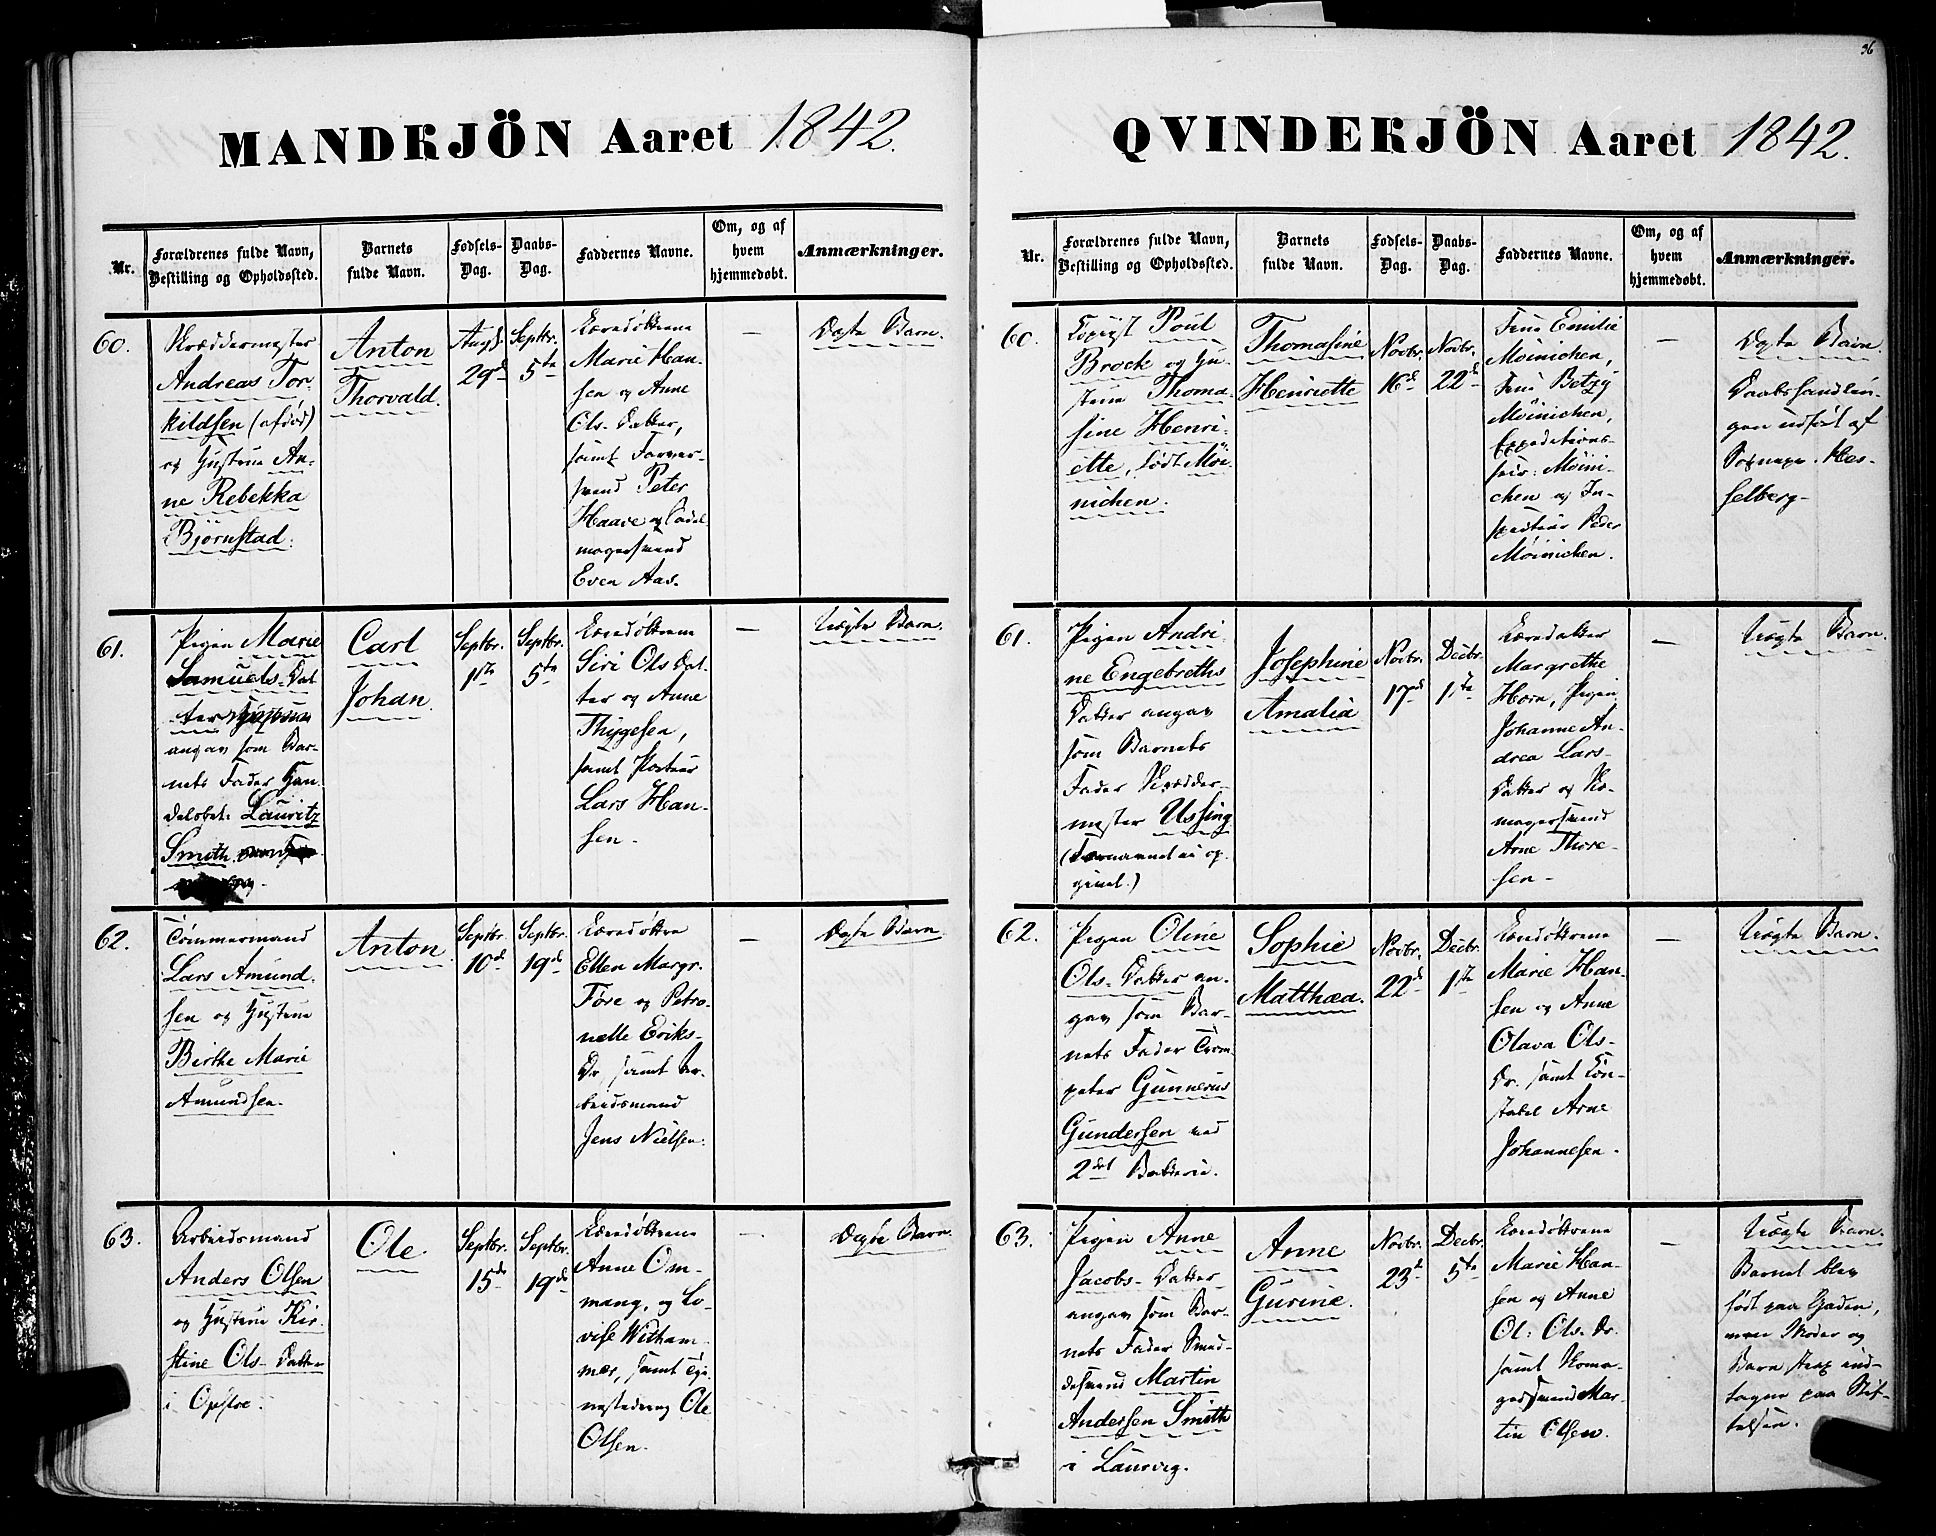 36
MANDKJÖN Aaret 1842.
Nr.
Forældrenes fulde Navn,
Bestilling og Opholdssted.
Barnets
fulde Navn.
Fødsels-
Dag.
Daabs-
Dag.
Faddernes Navne.
Om, og af
hvem
hjemmedøbt.
Anmærkninger.
60.
Skræddermester
Andreas Tor-
kildsen (afdød)
og Hustrue An-
ne Rebekka
Bjørnstad.
Anton
Thorvald.
Augs.
29d
Septbr.
5te
Marie Han-
sen og Anne
Ols-Datter,
samt Farver-
svend Peter
Haave og Sadel
magersvend
Even Aas.
—
Ægte Barn
61.
Pigen Marie
Samuels-Dat
ter
angav som Bar-
nets Fader Han-
delsbet: Lauritz
Smith
Carl
Johan.
Septbr.
1ste
Septbr.
5te
Siri Olsdat
ter og Anne
Thygesen,
samt
Lars Han-
sen.
—
Uægte Barn.
62.
Tømmermand
Lars Amund-
sen og Hustrue
Birthe Marie
Amundsen.
Anton
Septbr.
10d
Septbr.
19d
Ellen Margr.
Tøre og Petro-
nelle Eriks-
Dr, samt Ar-
beidsmand
Jens Nielsen.
—
Ægte Barn
63.
Arbeidsmand
Anders Olsen
og Hustrue Kir-
stine Ols-Datter
i
Ole
Septbr.
15de
Septbr.
19de
Anne Om-
mang, og Lo-
vise Witham-
mer, samt
Ole
Olsen.
—
Ægte Barn.
QVINDEKJÖN Aaret 1842.
Nr.
Forældrenes fulde Navn,
Bestilling og Opholdssted.
Barnets
fulde Navn.
Fødsels-
Dag.
Daabs-
Dag.
Faddernes Navne.
Om, og af
hvem
hjemmedøbt.
Anmærkninger.
60.
Copiist Poul
Brock og Hu-
strue Thoma-
sine Henri-
ette, født Møi-
nichen.
Thomasine
Henriette
Novbr.
16d
Novbr.
22d
Fru Emilie
Møinichen,
Betzy
Møinichen,
Expeditions-
secr: Møini-
chen og In-
specteur Peder
Møinichen.
—
Ægte Barn
Daabshandlin-
gen udført af
Sognepr. Hes-
selberg-
61.
Pigen Andri-
ne Engebreths
Datter angav
som Barnets
Fader Skrædder-
mester Ussing
(Fornavnet ei op-
givet.)
Josephine
Amalia
Novbr.
17d
Decbr.
1ste
Margrethe
Horn, Pigen
Johanne An-
drea Lars-
Datter og Sko-
magersvend
Arne Thore-
sen-
—
Uægte Barn.
62.
Pigen Oline
Ols-Datter an-
gav som Bar-
nets Fader Trom-
peter Gunnerus
Gundersen ved
2det Batterie.
Sophie
Matthæa.
Novbr.
22d
Decbr.
1ste
Marie Han-
sen og Anne
Olava Ols-
Dr. samt Con-
stabel Arne
Johannesen.
—
Uægte Barn.
63.
Pigen Anne
Jacobs-Datter
angav som Bar-
nets Fader Sme-
desvend Martin
Andersen Smith
i Laurvig.
Anne
Gurine.
Novbr.
23d
Decbr.
5te
Marie Han-
sen og Anne
Ol: Ols. Dr.
samt Skoma-
gersvend Mar-
tin Olsen.
—
Uægte Barn.
Barnet blev
født paa Gaden,
men Moder og
Barn strax ind-
tagne paa Stif-
telsen.